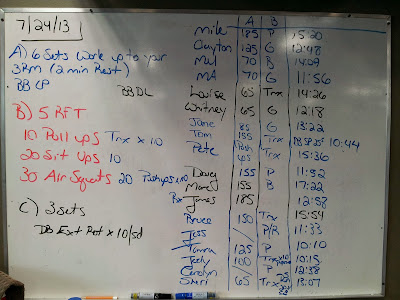 7/24/13
A) 6 Sets Work up to your
3RM (2 min Rest)
BB CP BB DL
B) 5 RFT
10 Pull ups Trx x 10
20 Sit Ups 10
30 Air Squats 20 Pushups x10
C) 3 sets
DB Ext Rot x 10/sd
A B
Mike 185 P 15:20
Clayton 125 G 12:48
Mel 70 B 14:09
MA 70 G 11:56
Louise 65 Trx 14:26
Whitney 65 G 12:18
Jane 85 G 13:22
Tom 155 Trx 10:44
Pete Push ups Trx 15:36
Doug 155 P 11:52
155 B 17:22
Rx James 185 12:58
Bruce 150 Trx 15:54
Jess / P/R 11:33
Tamra 125 P 10:10
100 Trx 10:15
Carolyn / P 12:38
Sheri 65 Trx 13:07